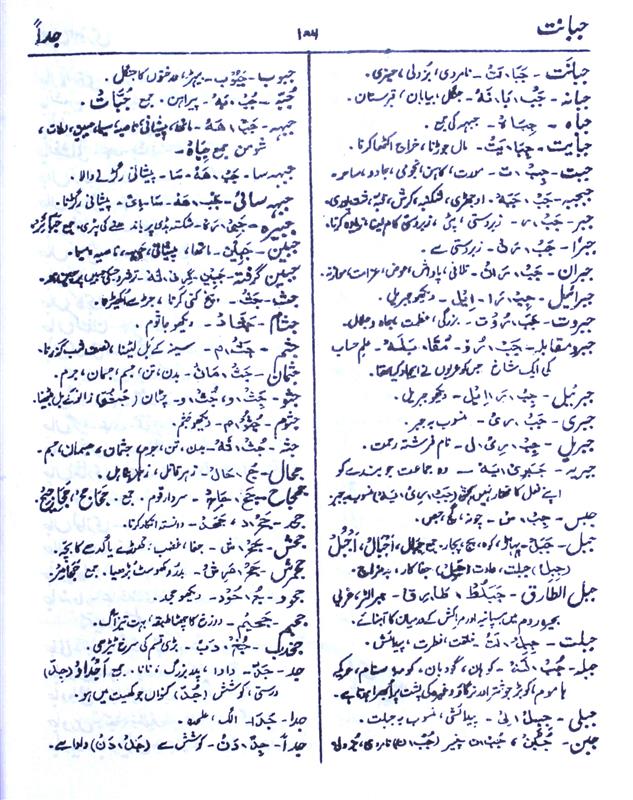 جبائت
۱۵۴
جداً
جبائت - جَبَا، ءَتْ - نامردی، بزدلی، حیزی۔
جبانہ - جَبْ، بَا، نَہْ - جنگل، بیابان، قبرستان۔
جباہ - جِبَاہْ - جبہہ کی جمع۔
جبایت - جِبَا، یَتْ - مال جوڑنا، خراج اکٹھا کرنا۔
جبت - جِبْ، ت - بت، کاہن، نجومی، جادو، ساحر۔
جبجبہ - جَبْ، جَبَہْ - اوجھڑی، شکنبہ، کرش،
جبر - جَبْ، ر - زبردستی، زبردستی کام لینا، زیادہ کرنا۔
جبراً - جَبْ، رَنْ - زبردستی سے۔
جبران - جَبْ، رَانْ - تلافی، پاداش، عوض،
جبرائیل - جِبْ، رَا، اِیْل - دیکھو جبریل۔
جبروت - جَبَ، رُوْت - بزرگی، عظمت، جاہ و جلال۔
جبر و مقابلہ - جَبْ، رُ، وْ، مُقَا، بَلَہْ - علم حساب
کی ایک شاخ جس کو عربوں نے ایجاد کیا تھا۔
جبرئیل - جِبْ، رَ، اِیْل - دیکھو جبریل۔
جبری - جَبْ، رِیْ - منسوب بہ جبر۔
جبریل - جِبْ، رِیْ، ل - نام فرشتہ رحمت۔
جبریہ - جَبْرِیْ، یَہْ - وہ جماعت جو بندے کو
اپنے فعل کا مختار نہیں منسوب بہ جبر
جبس - جِبْ، س - چونہ، گچ، جص۔
جبل - جَبَلْ - پہاڑ، کوہ، جمع جبال، اَجْبَالْ، اَجْبُلْ
(جِبِل) جبلت، عادت جفا کار، بدمزاج۔
جبل الطارق - جَبَلُطْ، طَا، رِقْ - جبرالٹر، غربی
بحیرہ روم میں ہسپانیہ اور مراکش کے درمیان کا آبنائے۔
جبلت - جِبِلْ، لَتْ - خلقت، فطرت، پیدائش۔
جبلہ - جُبْ، لَہْ - کوہان، کوہہ ستام،
جو شتر اور نر گاؤ وغیرہ کی پشت پر ابھرا ہوتا ہے۔
جبلی - جِبِلْ، لِیْ - پیدائشی، منسوب بہ جبلت۔
جبن - جُبُنْ، جُبْن پنیر (جُبْ، ن) نامردی، بزدلی
جبوب - جَبُوْب - بیہڑ، درختوں کا جنگل۔
جبہ - جُبْ، بَہْ - پیراہن۔ جمع جُبَّاتْ۔
جبہہ - جَبْ، ہَہْ - ماتھا، پیشانی، ناصیہ، سیما، جبین،
جمع جِبَاہْ۔
جبہہ سا - جَبْ، ہَہْ، سَا - پیشانی رگڑنے والا۔
جبہہ سائی - جَبْ، ہَہْ، سَا، یِیْ - پیشانی رگڑنا۔
جبیرہ - جَبِیْ، رَہْ - شکستہ ہڈی پر باندھنے کی پٹری، جمع جَبَائِرْ۔
جبین - جَبِیْن - ماتھا، پیشانی، جبہہ، ناصیہ، سیما۔
جبین گرفتہ
جث - جَثْ - بیخ کنی کرنا، جڑ سے اکھیڑنا۔
جثام - جَثَّامْ - دیکھو جاثوم۔
جثم - جَثْ، م - سینہ کے بل لیٹنا، نصف شب گزرنا۔
جثمان - جُثْ، مَانْ - بدن، تن، جسم، جسمان، جرم۔
جثو - جَثْ، وْ، جُثُ، وْ - زانو کے بل بیٹھنا۔
جثوم - جُثُوْ، م - دیکھو جثم۔
جثہ - جُثْ، ثَہْ - بدن، تن، جرم، جثمان، جسمان، جسم۔
جحال - جُحَالْ - زہر قاتل، زہر ہلاہل۔
جحجاح - جَحْ، جَاحْ - سردار قوم۔ جمع جَحَاجِحْ، جَحَاجِیْحْ۔
جحد - جَحْ، د، جُحْد - دانستہ انکار کرنا۔
جحش - جَحْ، ش - جفا، غضب، گھوڑے یا گدھے کا بچہ۔
جحمرش - جَحْ، مَرِشْ - بدرو کھوسٹ بڑھیا۔ جمع جَحَامِرْ۔
جحود - جُحُ، وْد - دیکھو جحد۔
جحیم - جَحِیْم - دوزخ کا چھٹا طبقہ، بہت تیز آگ۔
جخدب - جُخْ، دَبْ - بڑی قسم کی سرخ ٹیڑی۔
جد - جَدّ - دادا، پدر بزرگ، نانا۔ جمع اَجْدَادْ (جِدّ)
درستی، کوشش (جُدّ) کنواں جو کھیت میں ہو۔
جدا - جُدَا - الگ، علحدہ۔
جداً - جِدْ، دَنْ - کوشش سے (جَدْ، دَنْ) دادا سے۔